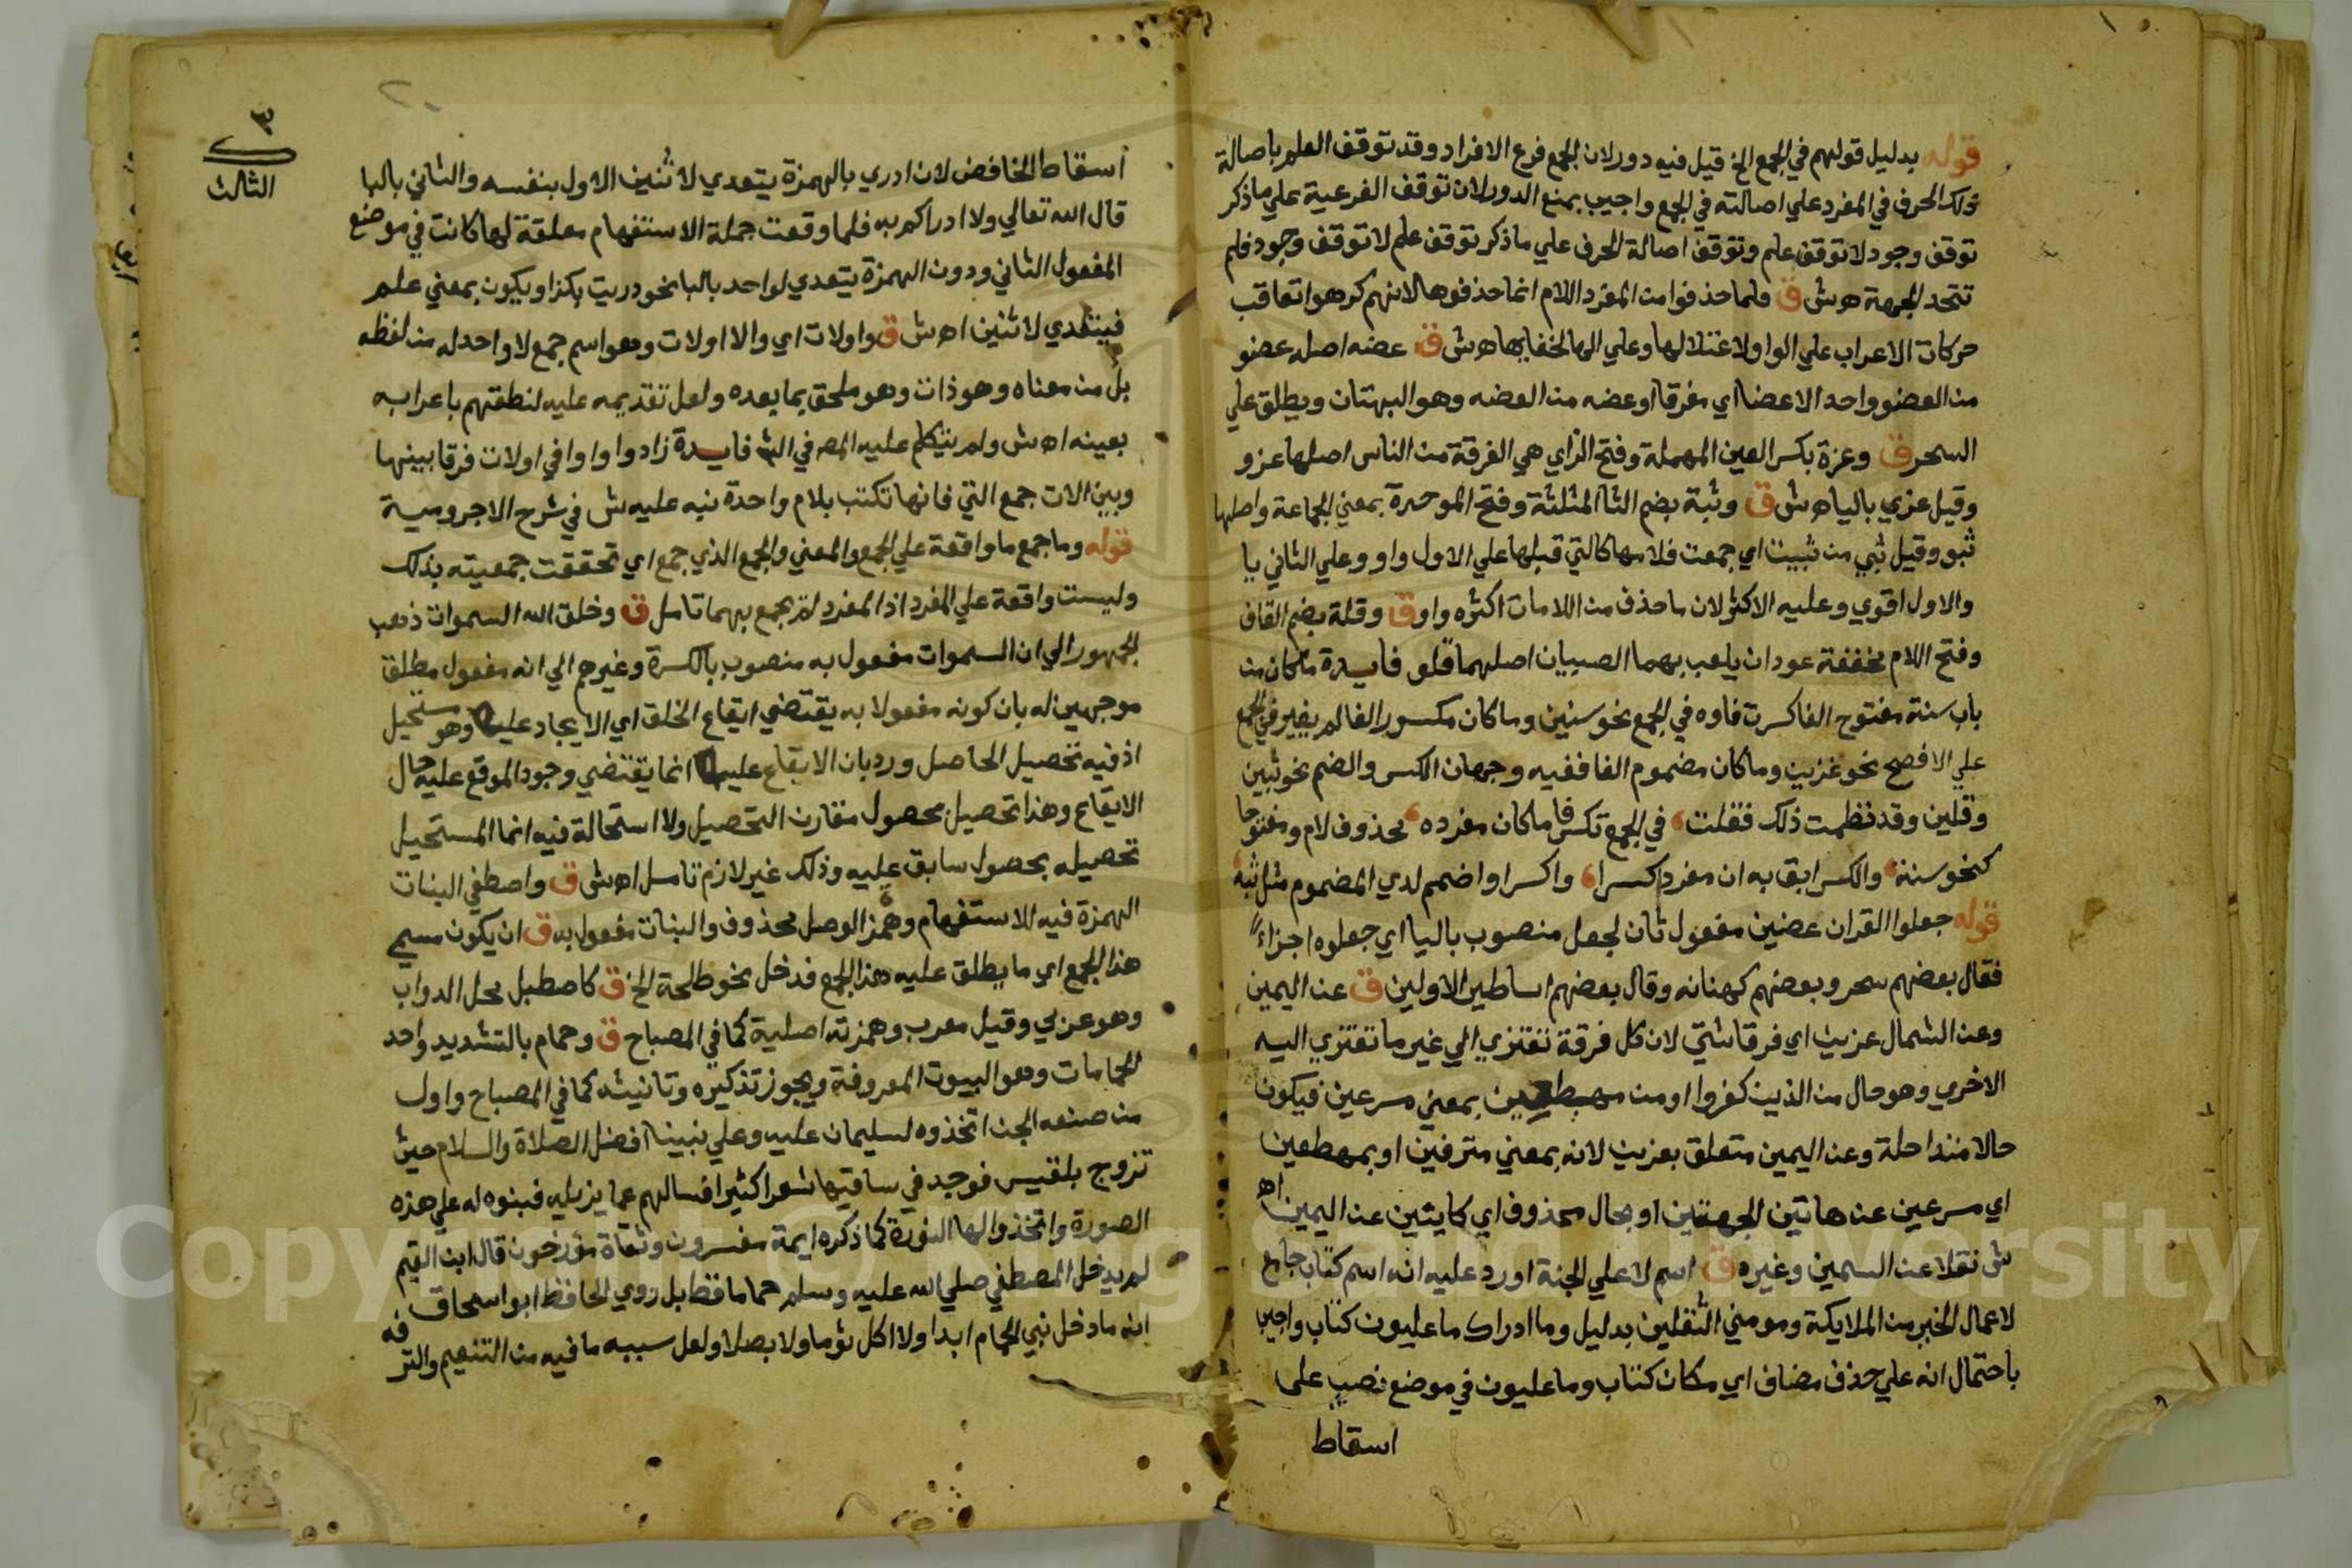 قوله بدليل قولهم في الجمع الخ قيل فيه دور لان الجمع فرع الافراد وقد توقف العلم باصالة
ذلك الحرف في المفرد علي اصالته في الجمع واجيب بمنع الدور لان توقف الفرعية علي ما ذكر
توقف وجود لا توقف علم وتوقف اصالة الحرف علي ما ذكر توقف علم لا توقف وجود فلم
تتحد الجهة اه ش ق ولما حذفوا من المفرد اللام انما حذفوها لانهم كرهوا تعاقب
حركات الاعراب علي الواو لاعتلالها وعلي الها لخفايها اه ش ق عضه اصله عضو
من العضو واحد الاعضا اي مفرقا او عضه من العضه وهو البهتان ويطلق علي
السحر ق وعزة بكسر العين المهملة وفتح الزاي هي الفرقة من الناس اصلها عزو
وقيل عزي باليا اه ش ق وثبة بضم الثا المثلثة وفتح الموحدة بمعني الجماعة واصلها
ثبو وقيل ثبي من ثبيت اي جمعت فلامها كالتي قبلها علي الاول واو وعلي الثاني يا
والاول اقوي وعليه الاكثر لان ما حذف من اللامات اكثره واو ق وقلة بضم القاف
وفتح اللام مخففة عودان يلعب بهما الصبيان اصلهما قلو فايدة ما كان من
باب سنة مفتوح الفا كسرت فاوه في الجمع نحو سنين وما كان مكسور الفا لم يغير في الجمع
علي الافصح نحو عزين وما كان مضموم الفا ففيه وجهان الكسر والضم نحو ثبين
وقلين وقد نظمت ذلك فقلت في الجمع تكسر فا ما كان مفرده محذوف لام ومفتوحا
كنحو سنة والكسر ابق به ان مفرد كسرا واكسر او اضمم لدي المضموم مثل ثبة
قوله جعلوا القران عضين مفعول ثان لجعل منصوب باليا اي جعلوه اجزاءً
فقال بعضهم سحر وبعضهم كهانه وقال بعضهم اساطير الاولين ق عن اليمين
وعن الشمال عزين اي فرقا شتي لان كل فرقة تعتزي الي غير ما تعتزي اليه
الاخري وهو حال من الذين كفروا او من مهطعين بمعني مسرعين فيكون
حالا متداحلة وعن اليمين متعلق بعزين لانه بمعني متفرقين او بمهطعين
اي مسرعين عن هاتين الجهتين او بحال محذوف اي كايتين عن اليمين اه
ش نقلا عن السمين وغيره ق اسم لاعلي الجنة اورد عليه انه اسم كتاب جامع
لاعمال الخير من الملايكة ومومني الثقلين بدليل وما ادراك ما عليون كتاب واجيب
باحتمال انه علي حذف مضاف اي مكان كتاب وما عليون في موضع نصب علي
اسقاط
٣
الثالث
اسقاط الخافض لان ادري بالهمزة يتعدي لاثنين الاول بنفسه والثاني بالبا
قال الله تعالي ولا ادراكم به فلما وقعت جملة الاستفهام معلقة لها كانت في موضع
المفعول الثاني ودون الهمزة يتعدي لواحد بالبا نحو دريت بكذا ويكون بمعني علم
فيتعدي لاثنين اه ش ق واولات اي والا اولات وهو اسم جمع لا واحد له من لفظه
بل من معناه وهو ذات وهو ملحق بما بعده ولعل تقديمه عليه لنطقهم باعرابه
بعينه اه ش ولم يتكلم عليه المص في الش فايدة زادوا واوا في اولات فرقا بينها
وبين الات جمع التي فانها تكتب بلام واحدة نبه عليه ش في شرح الاجرومية
قوله وما جمع ما واقعة علي الجمع والمعني والجمع الذي جمع اي تحققت جمعيته بذلك
وليست واقعة علي المفرد اذ المفرد لم يجمع بهما تامل ق وخلق الله السموات ذهب
الجمهور الي ان السموات مفعول به منصوب بالكسرة وغيرهم الي انه مفعول مطلق
موجهين له بان كونه مفعولا به يقتضي ايقاع الخلق اي الايجاد عليها وهو مستحيل
اذ فيه تحصيل الحاصل ورد بان الايقاع عليها انما يقتضي وجود الموقع عليه حال
الايقاع وهذا تحصيل محصول مقارن التحصيل ولا استحالة فيه انما المستحيل
تحصيله بحصول سابق عليه وذلك غير لازم تامل اه ش ق واصطفي البنات
الهمزة فيه للاستفهام وهمز الوصل محذوف والبنات مفعول به ق ان يكون مسمي
هذا الجمع اي ما يطلق عليه هذا الجمع فدخل نحو طلحة الخ ق كاصطبل محل الدواب
وهو عزبي وقيل معرب وهمزته اصلية كما في المصباح ق وحمام بالتشديد واحد
الحمامات وهو البيوت المعروفة ويجوز تذكيره وتانيثه كما في المصباح واول
من صنعه الجن اتخذوه لسليمان عليه وعلي نبينا افضل الصلاة والسلام حين
تزوج بلقيس فوجد في ساقيها شعرا كثيرا فسالهم عما يزيله فبنوه له علي هذه
الصورة واتخذوا لها النورة كما ذكره ايمة مفسرون وثقاة مؤرخون قال ابن القيم
لم يدخل المصطفي صلي الله عليه وسلم حماما قط بل روي الحافظ ابو اسحاق
انه ما دخل نبي الحمام ابدا ولا اكل ثوما ولا بصلا ولعل سببه ما فيه من التنعيم والترفه